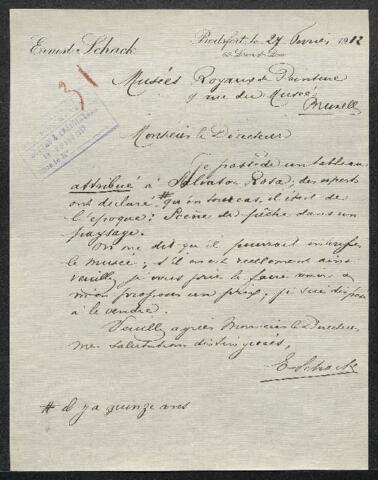 Ernest Schack
le 27 février 1912
31
Musées Royaux de Peinture
9 rue du Musée
Bruxelles
Monsieur le Directeur
Je possède un tableau
attribué à Salvator Rosa, des experts
ont déclaré # qu'en tout cas, il était de
l'epoque: Scène de pêche dans un
paysage.
On me dit qu'il pourrait intéresser
le musée; s'il en est reellement ainsi
veuillez je vous prie le faire voir et
m'en proposer un prix; je suis disposé
à le vendre.
Veuillez agréer Monsieur le Directeur,
mes salutations distinguées,
E Schack
# il y a quinze ans